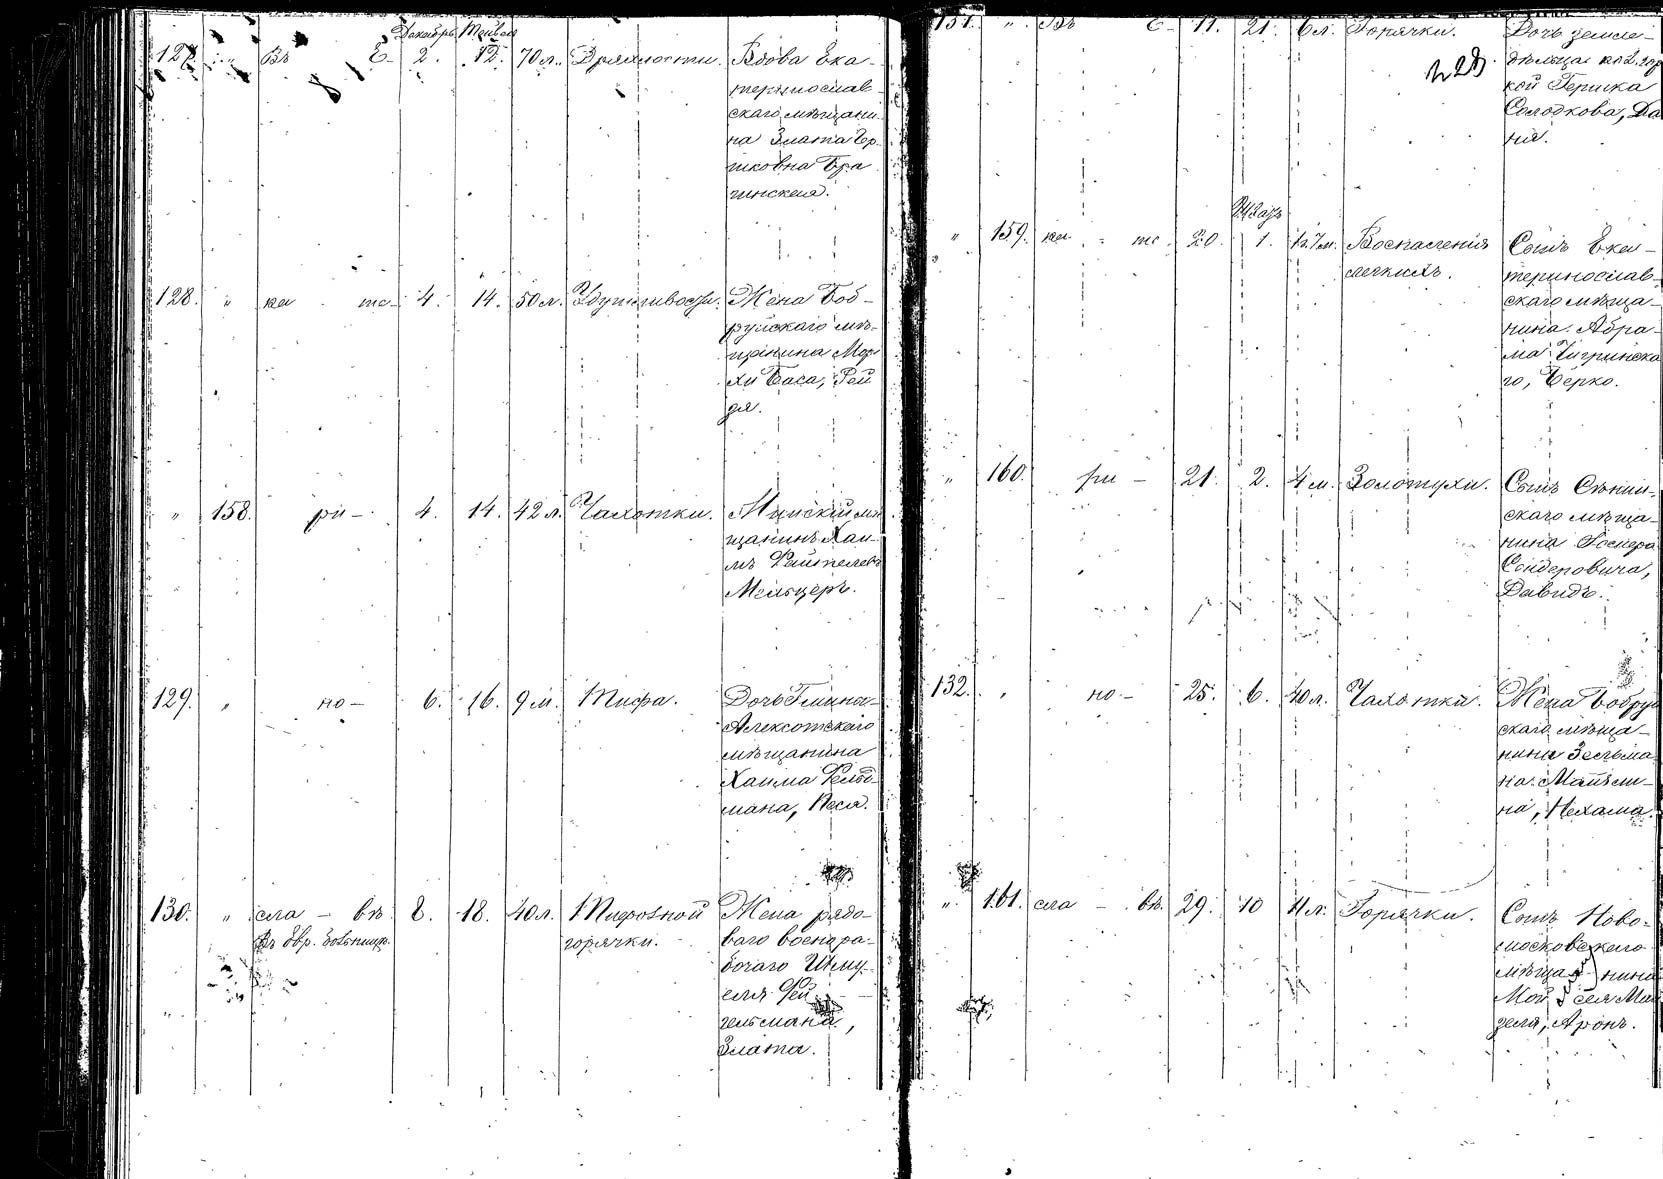 Декабрь Тейвес
127. " Въ Е- 2. 12. 70 л. Дряхлости. Вдова Ека-
теринослав-
скаго мѣщани-
на Злата Гер-
шковна Бра-
гинская.
128. " ка те- 4. 14. 50 л. Удушливости. Жена Боб-
руйскаго мѣ-
щанина Мор-
хи Баса, Рей
зя.
" 158. ри- 4. 14. 42 л. Чахотки. Минскій мѣ
щанинъ Хаи-
мъ
Мельцеръ.
129. " но- 6. 16. 9 м. Тифа. Дочь
Алексотскаго
мѣщанина
Хаима Фельд-
мана, Песя.
130. " сла - вѣ. 8. 18. 40 л. Тифозной Жена рядо-
Въ Евр. больницѣ. горячки. ваго военора-
бочаго Шму-
еля Фей
гельмана,
Злата.
131. " Въ Е- 11. 21. 6 л. Горячки. Дочь земле-
228
дѣльца
кой Гершка
Солодкова, Да
ня.
Шват
" 159. ка - те 20. 1. 1 г. 7 м. Воспаленія Сынъ Ека-
легкихъ. теринослав-
скаго мѣща-
нина Абра-
ма Чигринска
го, Берко.
" 160. ри - 21. 2. 4 м. Золотухи. Сынъ
скаго мѣща-
нина
Сендеровича,
Давидъ.
132. " но - 25. 6. 40 л. Чахотки. Жена Бобруй
скаго мѣща-
нина Зельма
на
на, Нехама.
" 161. сла - вѣ. 29. 10 11 л. Горячки. Сынъ Ново-
московскаго
мѣща-нина
Мой сея Май
зеля, Аронъ.